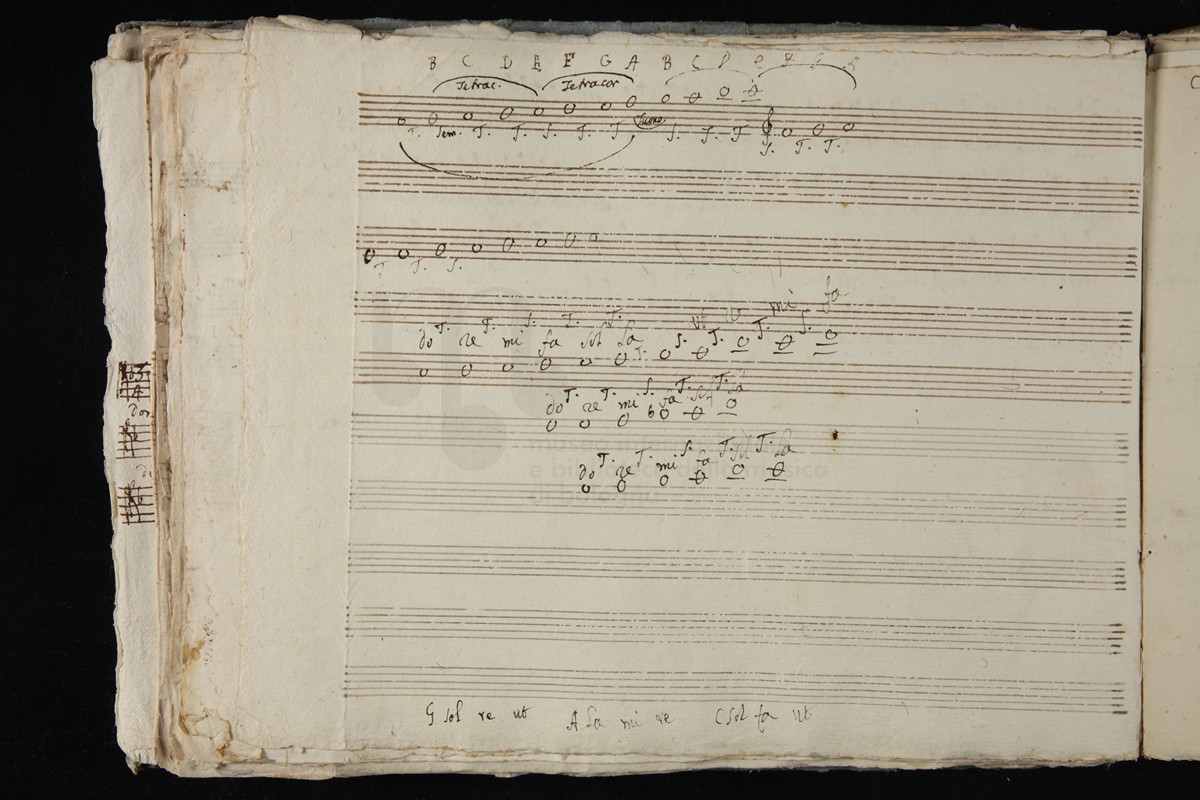 B C D E F G A B C D e
Tetrac. Tetracor
T. Sem. T. T. S. T. T Tuono S. T. T S. T. T.
T. T. S.
mi fa
T. T. S. T. T. S. T. T. S.
do re mi fa sol la
T.
T. T. S. T. T.
do re mi fa sol la
b
T. T. S. T. T.
do re mi fa sol la
museo internazionale
e biblioteca della musica
di bologna
G sol re ut A la mi re C sol fa ut